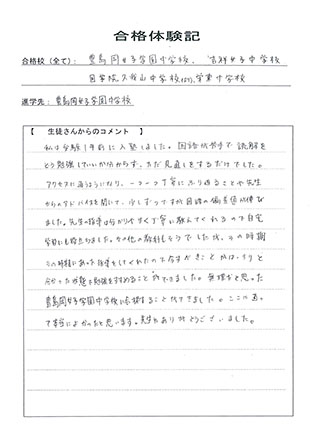 合格体験記
合格校(全て): 豊島岡女子学園中学校、吉祥女子中学校
国学院久我山中学校(ST)、栄東中学校
進学先: 豊島岡女子学園中学校
【 生徒さんからのコメント 】
私は受験1年前に入塾しました。国語が苦手で読解を
どう勉強していいか分からず、ただ見直しをするだけでした。
アクセスに通うようになり、一つ一つ丁寧にふり返ることや先生
からのアドバイスを聞いて、少しずつですが国語の偏差値が伸び
ました。先生の指導は分かりやすく丁寧に教えてくれるので自宅
学習にも役立ちました。その他の教科もそうでしたが、その時期
その時期にあった指導をしてくれたので今すべきことがはっきりと
分かった状態で勉強をすすめることができました。無理かと思った
豊島岡女子学園中学校に合格することができました。ここに通っ
て本当によかったと思います。先生ありがとうございました。